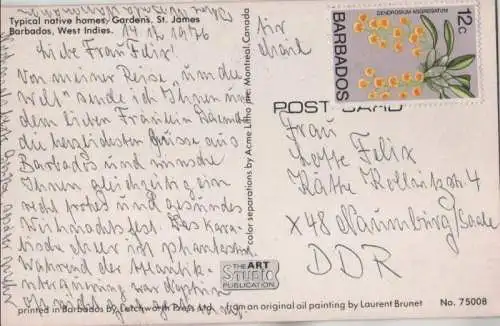 Typical native homes, Gardens, St. James
Barbados, West Indies.
14.12.1976
Liebe Frau Felix!
Von meiner Reise um die
Welt sende ich Ihnen und
dem lieben Fräulein
die herzlichsten Grüsse aus
Barbados und wünsche
Ihnen gleichzeitig ein
recht frohes und gesundes
Weihnachtsfest. Das Kara-
ibische Meer ist phantastisch.
Während der Atlantik-
überquerung war
printed in Barbados by Letchworth Press Ltd.
color separations by Acme Litho inc. Montreal, Canada
THE ART
STUDIO
PUBLICATION
from an original oil painting by Laurent Brunet
No. 75008
Air
Mail
DENDROBIUM AGGREGATUM
12c
BARBADOS
POST CARD
Frau
Lotte Felix
Käthe Kollwitzstr. 4
X48 Naumburg/Saale
DDR